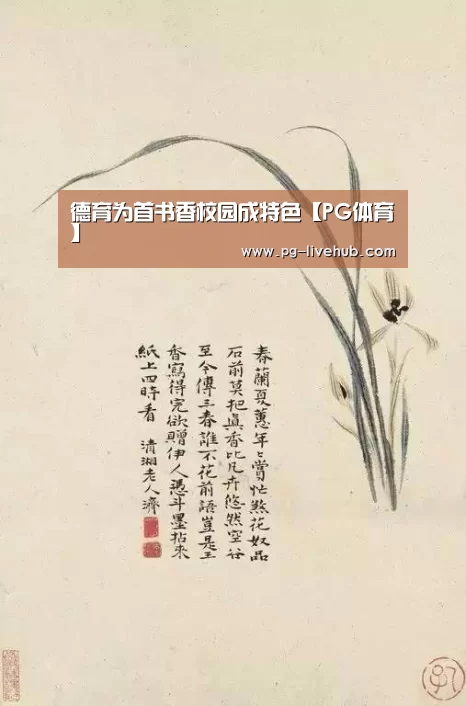 德育为首书香校园成特色【PG体育
】
www.pg-livehub.com
春蘭夏蕙年〻賞忙煞花奴品
石前莫把眞香比凡卉悠然空谷
至今傳三春誰不花前語豈是王
香寫得完欲贈伊人憑斗墨拈來
紙上四時看 清湘老人濟